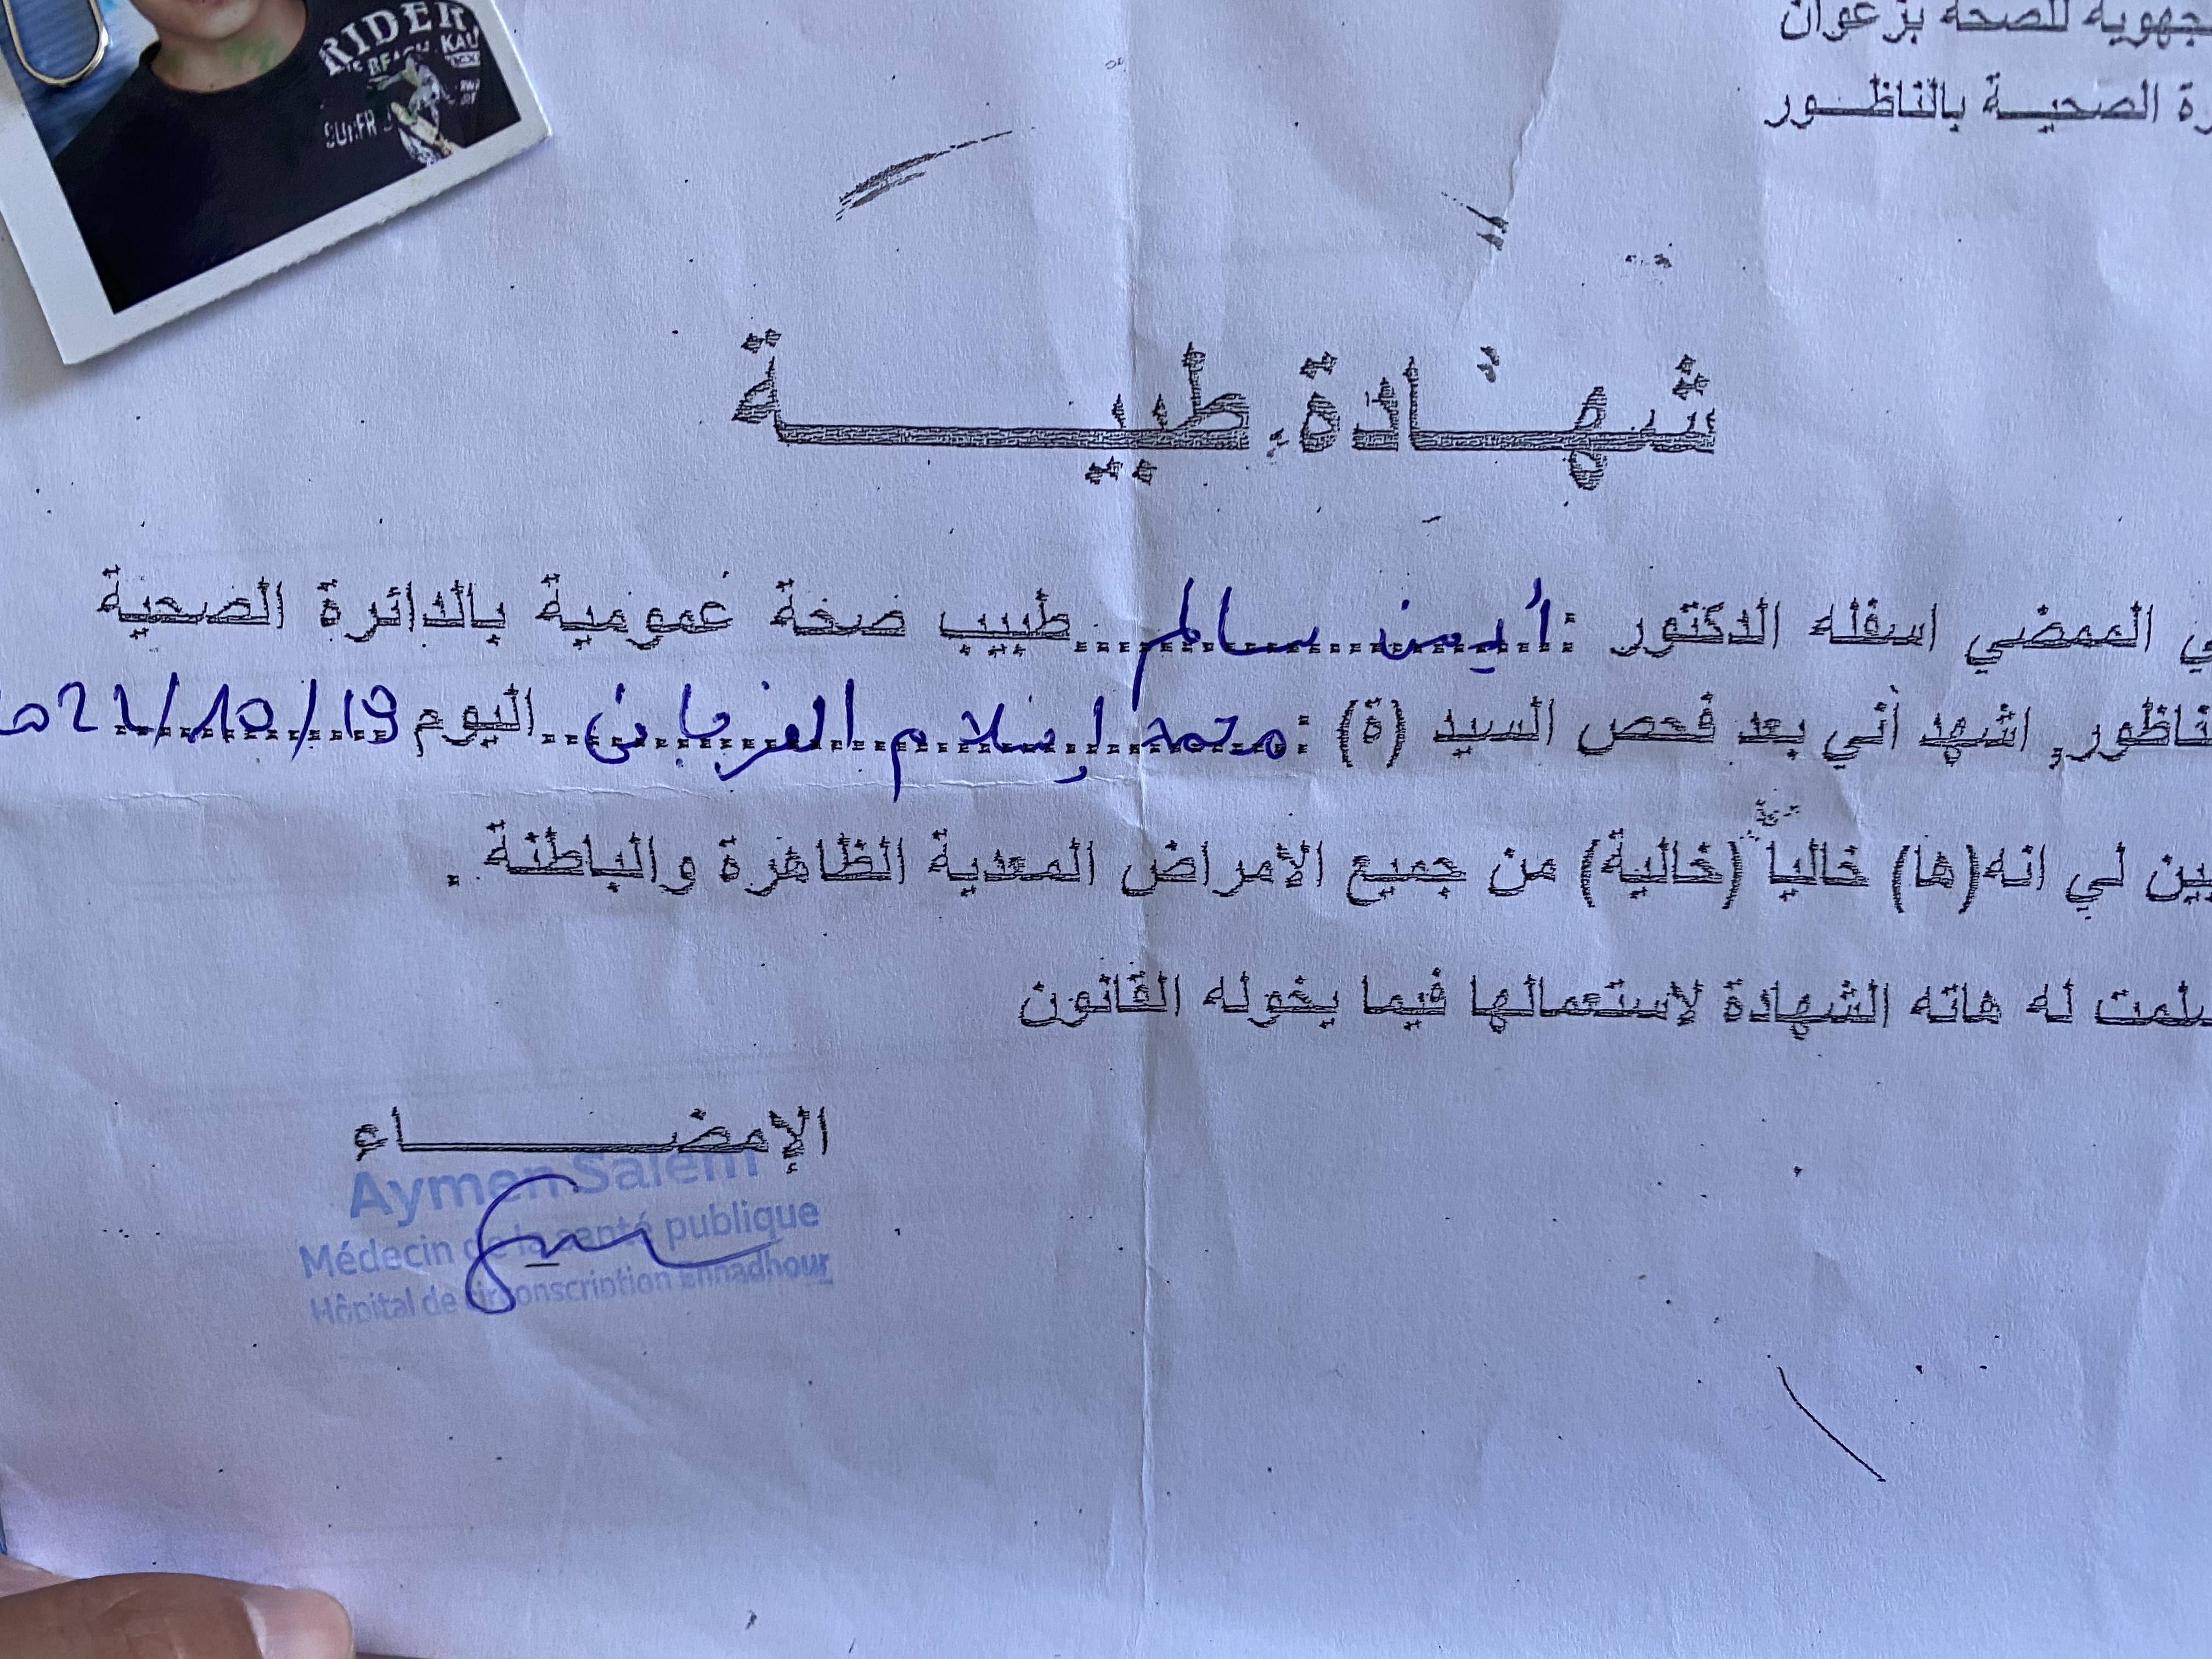 جهوية للصحة بزغوان
رة الصحية بالناظور
RIDER
KAU
SURFR
شهادة طبية
ي الممضي اسفله الدكتور : أيمن سالم طبيب صحة عمومية بالدائرة الصحية
ناظور, اشهد أني بعد فحص السيد (ة) : محمد إسلام الغرباني اليوم 19/10/21
ين لي انه(ها) خالياً (خالية) من جميع الأمراض المعدية الظاهرة والباطنة .
سلمت له هاته الشهادة لاستعمالها فيما يخوله القانون
الإمضاء
Aymen Salem
Médecin de la santé publique
Hôpital de circonscription Ennadhour